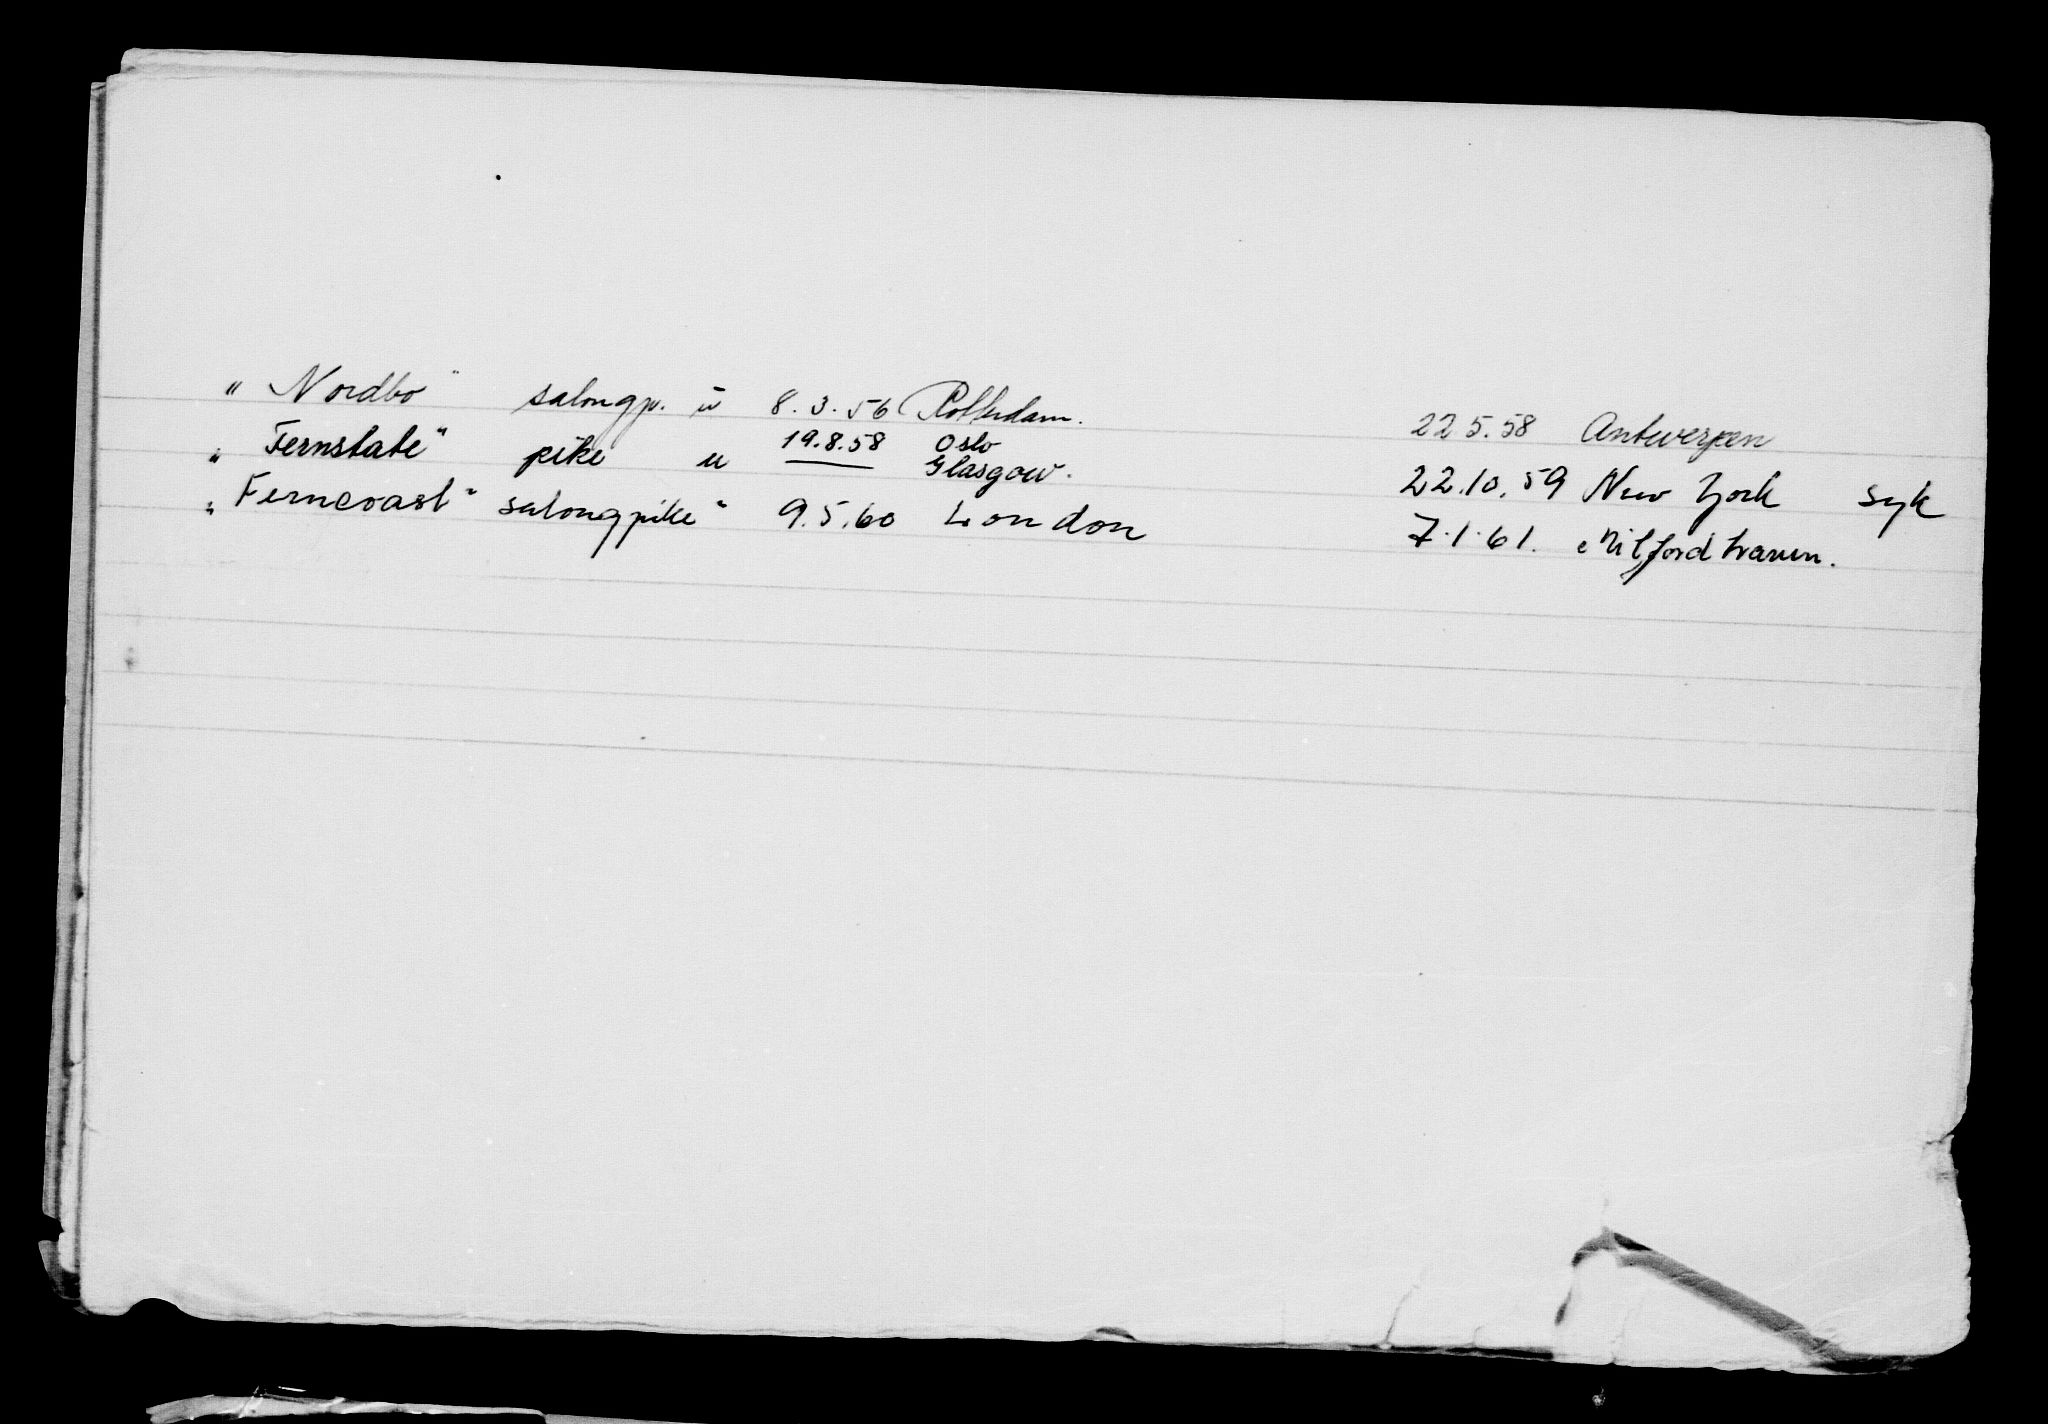 "Nordbo" salongp. u 8.3.56 Rotterdam. 22 5.58 Antwerpen
"Fernstate" pike u 19.8.58 Oslo
Glasgow. 22.10.59 New York syk
"Ferncoast" salongpike " 9.5.60 London 7.1.61. Milfordhaven.